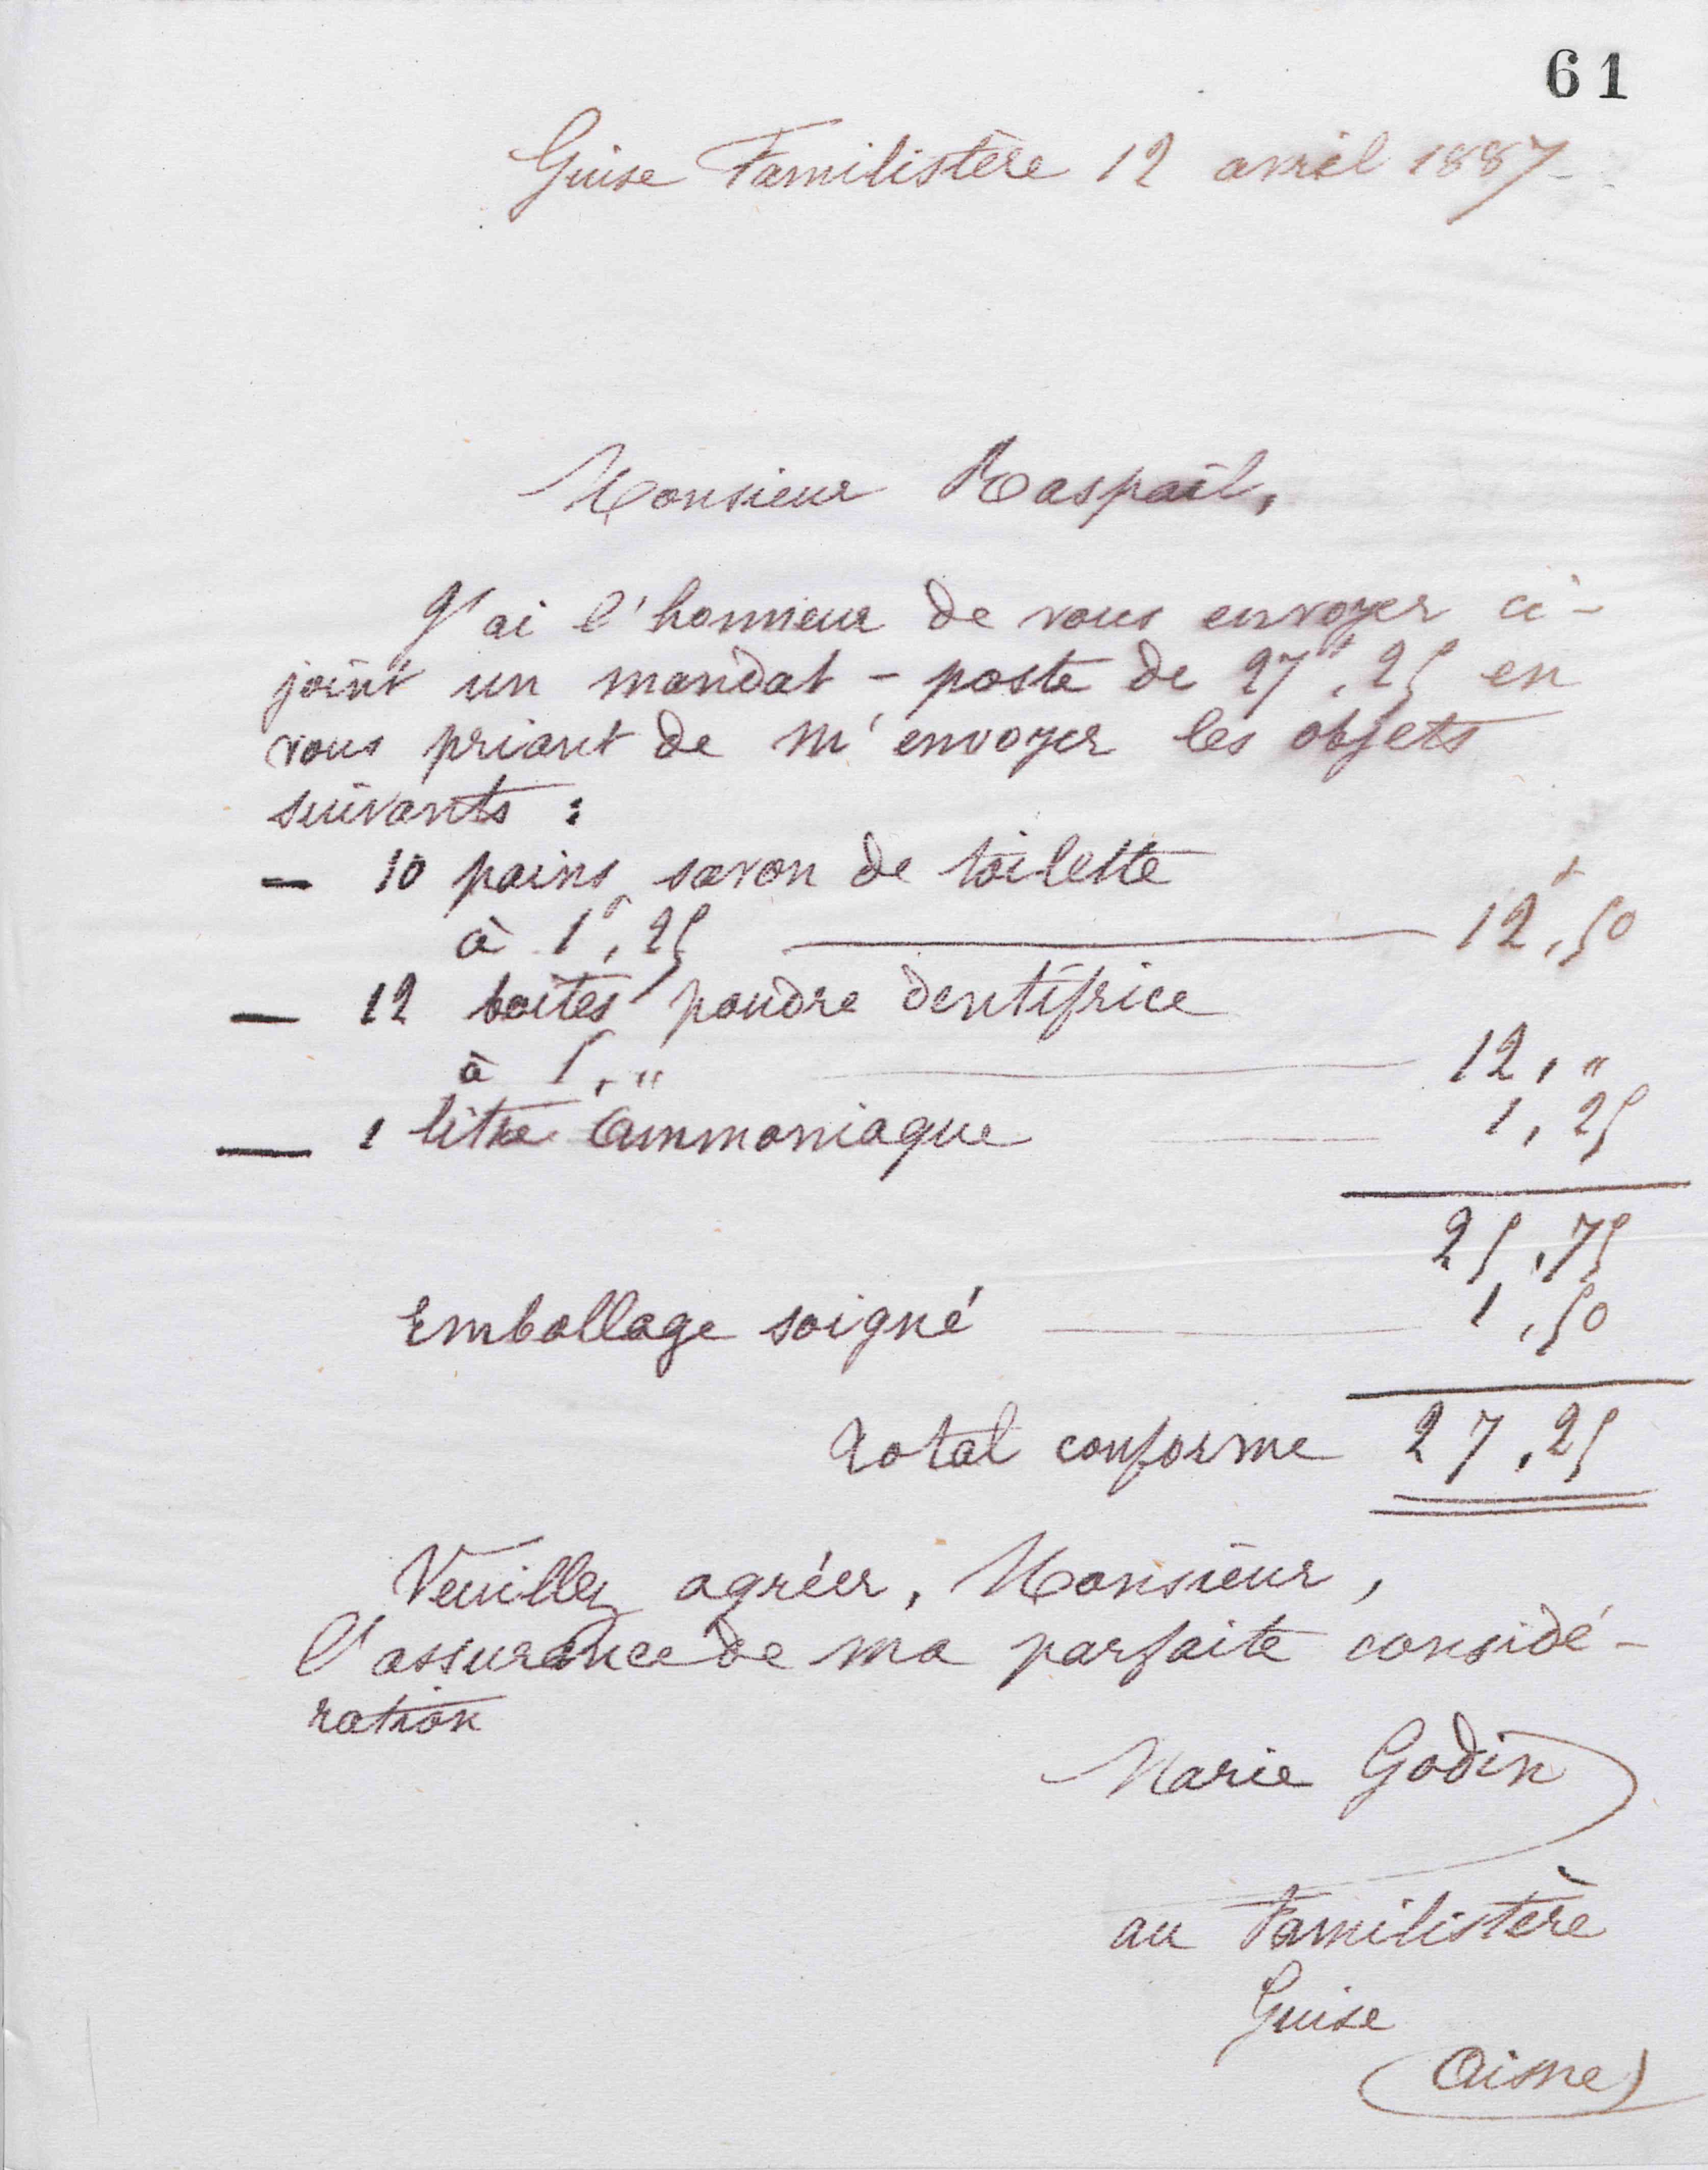 61
Guise Familistère 12 avril 1887
Monsieur Raspail,
J'ai l'honneur de vous envoyer ci-
joint un mandat-poste de 27f,25 en
vous priant de m'envoyer les objets
suivants :
— 10 pains savon de toilette
à 1f,25 — 12f,50
— 12 boîtes poudre dentifrice
à 1f,„ — 12,„
— 1 litre Ammoniaque — 1,25
25,75
Emballage soigné — 1,50
Total conforme 27,25
Veuillez agréer, Monsieur,
l'assurance de ma parfaite considé-
ration
Marie Godin
au Familistère
Guise
(Aisne)